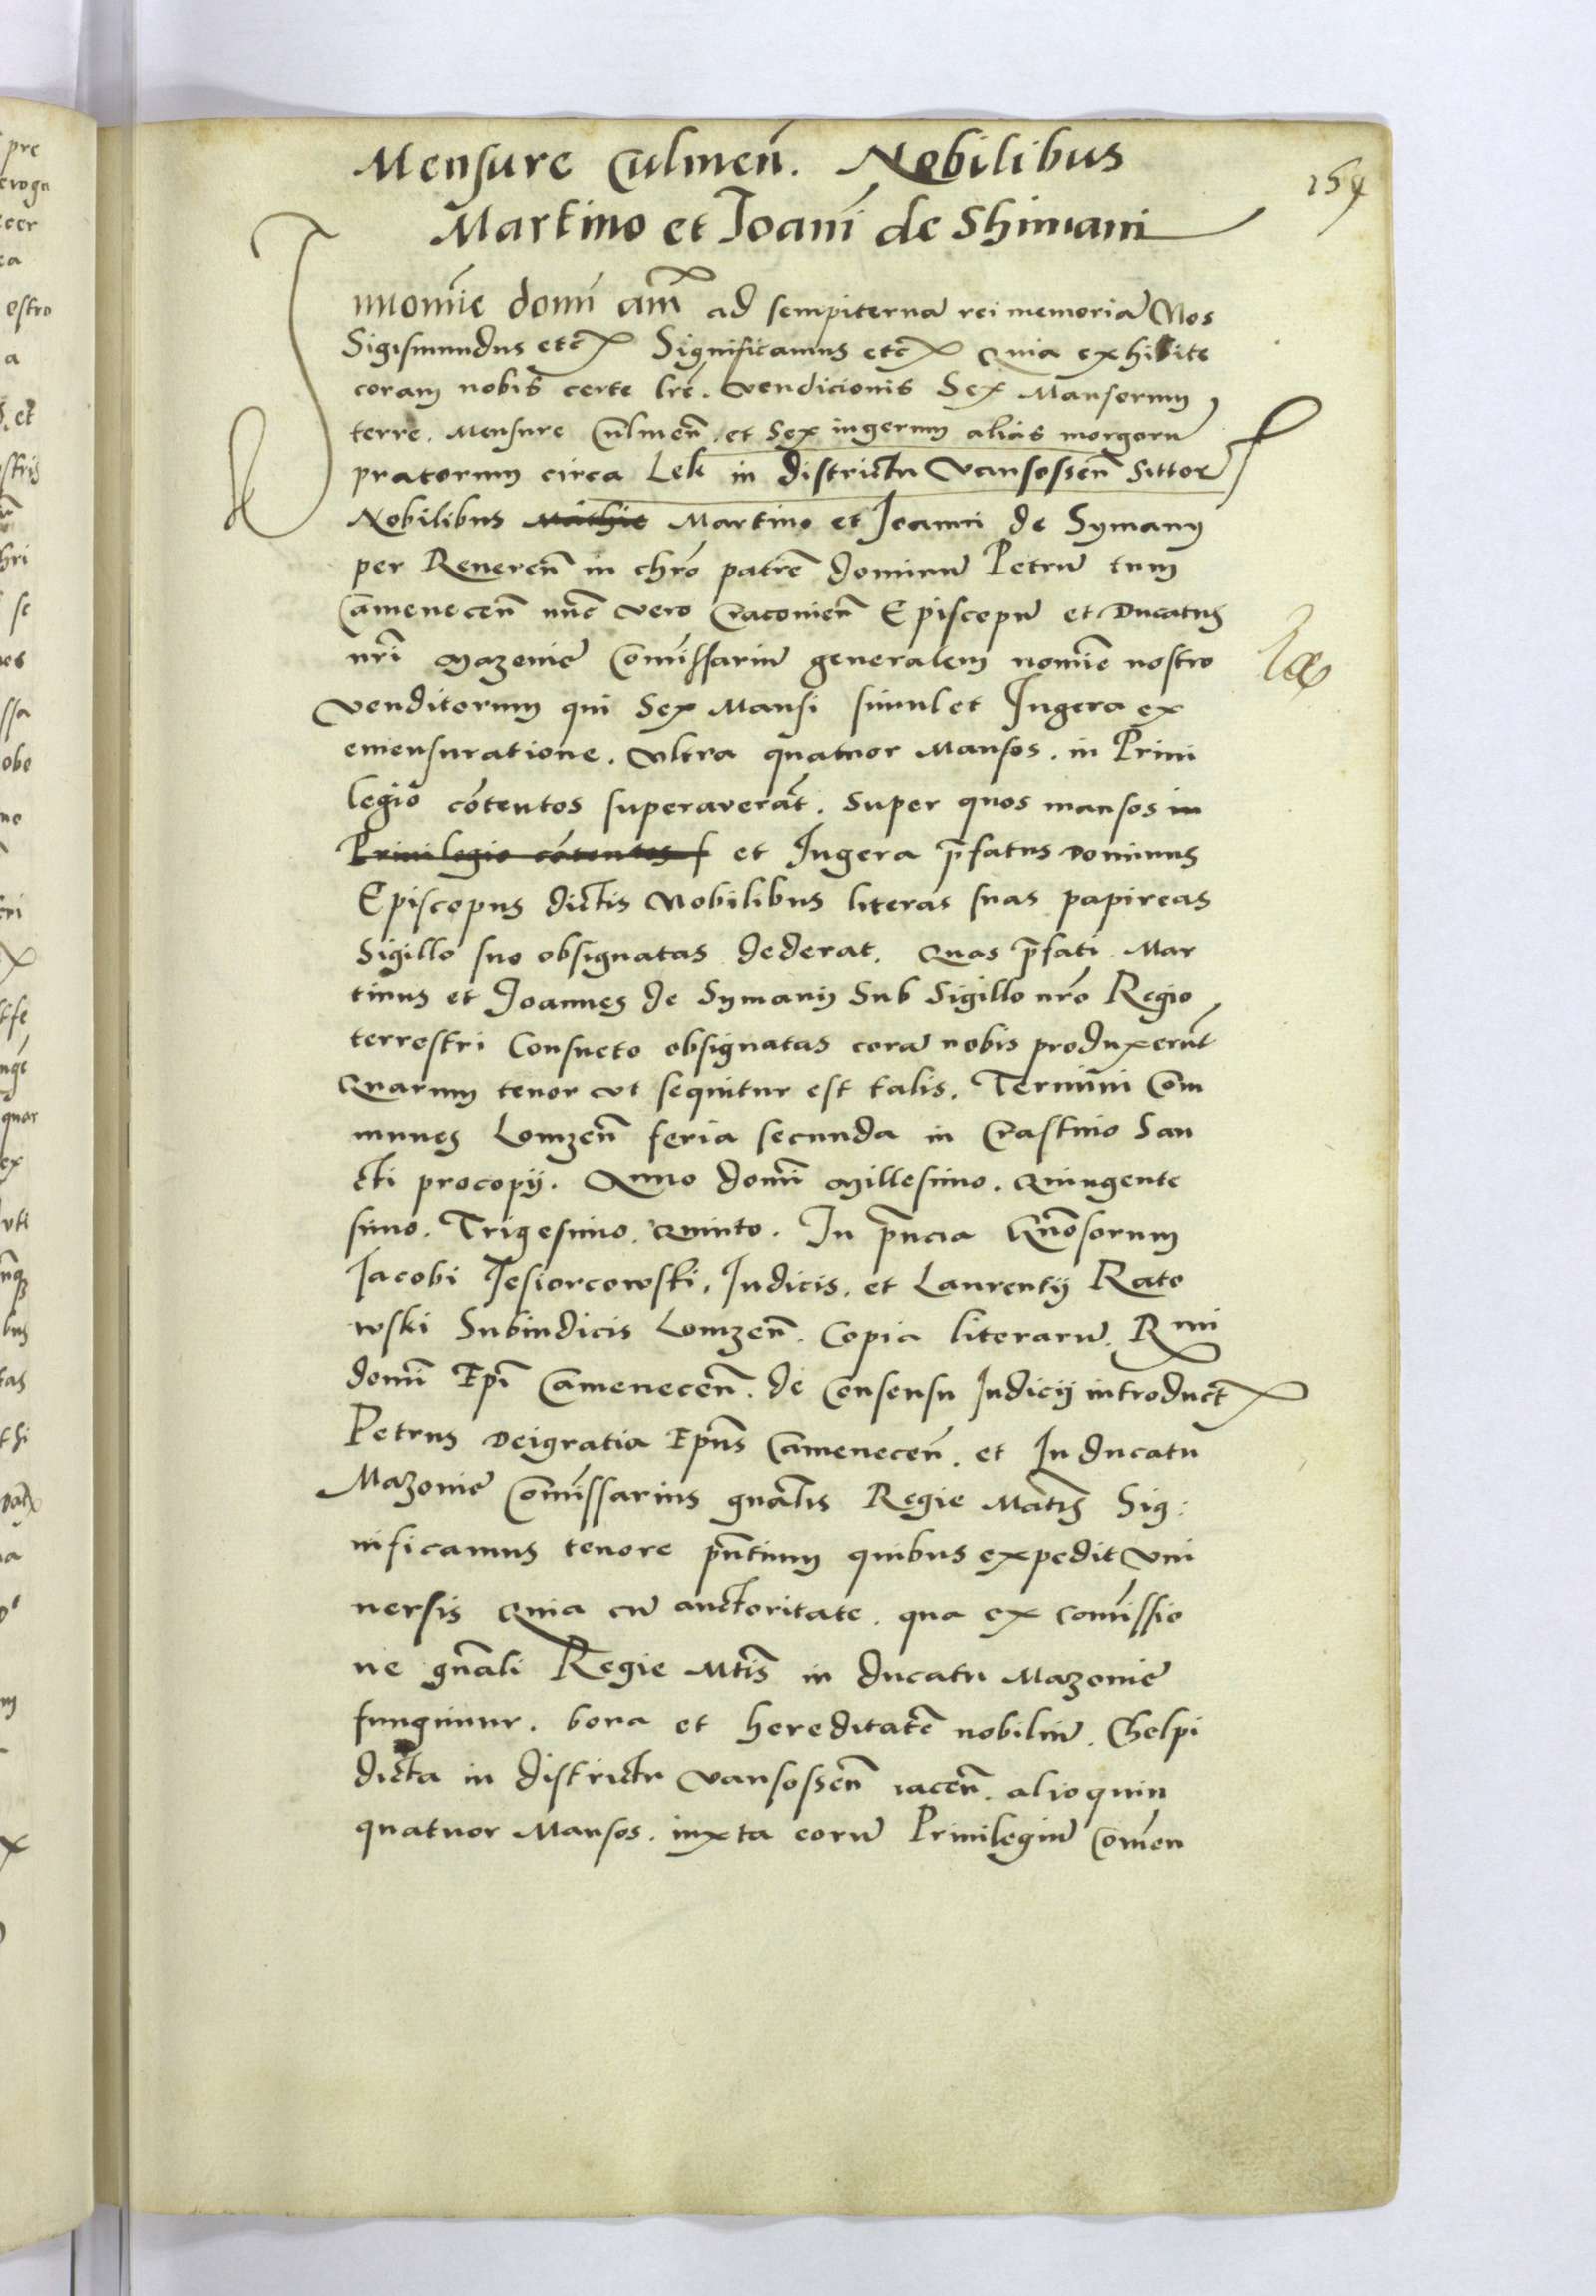 Mensure Culmen̄. Nobilibus
Martino et Joanī de Shimani
159
Innomīe domī am̄ ad sempiternā rei memoriā Nos
Sigismundus etc̄ Significamus etc̄ Quia exhibite
coram nobis certe lrē. vendicionis Sex Mansorum
terre. Mensure Culmen̄. et Sex iugerum alias morgorū
pratorum circa Lek in districtu Vansossen̄ Sittor
Nobilibus Mathie Martino et Joanni de Symany
per Reveren̄ in chrō patrē dominū Petrū tum
Camenecen̄ nūc vero Cracovien̄ Episcopū et Ducatus
nr̄i Mazovie Comīssariū generalem nomīe nostro
venditorum qui Sex Mansi simul et Jugera ex
emensuratione. ultra quatuor Mansos. in Privi
legio cōtentos superaverāt. Super quos mansos in
Privilegio cōtentos et Jugera p̄fatus Dominus
Episcopus dictis Nobilibus literas suas papireas
Sigillo suo obsignatas dederat. Quas p̄fati Mar
tinus et Joannes de Symany Sub Sigillo nr̄o Regio
terrestri Consueto obsignatas corā nobis produxerūt
Quarum tenor ut sequitur est talis. Termini Com
munes Lomzen̄ feria secunda in Crastino San
cti procopij. Anno domī Millesimo. Quingente
simo. Trigesimo. Quinto. In p̄ncia Gn̄osorum
Jacobi Jesiorcowski. Judicis. et Laurentij Rato
wski Subiudicis Lomzen̄. Copia literarū. Rmi
domī Epī Camenecen̄. de Consensu Judicij introduct
Petrus Deigratia Ep̄us Camenecen̄. et In ducatu
Mazovie Comīssarius gn̄alis Regie Mātis Sig:
nificamus tenore p̄ntium quibus expedit Uni
versis Quia cū auctoritate. qua ex comīssio
ne gn̄ali Regie Mtīs in ducatu Mazovie
fungimur. bona et hereditatē nobiliū. Chelpi
dicta in districtu Vansossen̄ iacen̄. alioquin
quatuor Mansos. iuxta eorū Privilegiū Comen